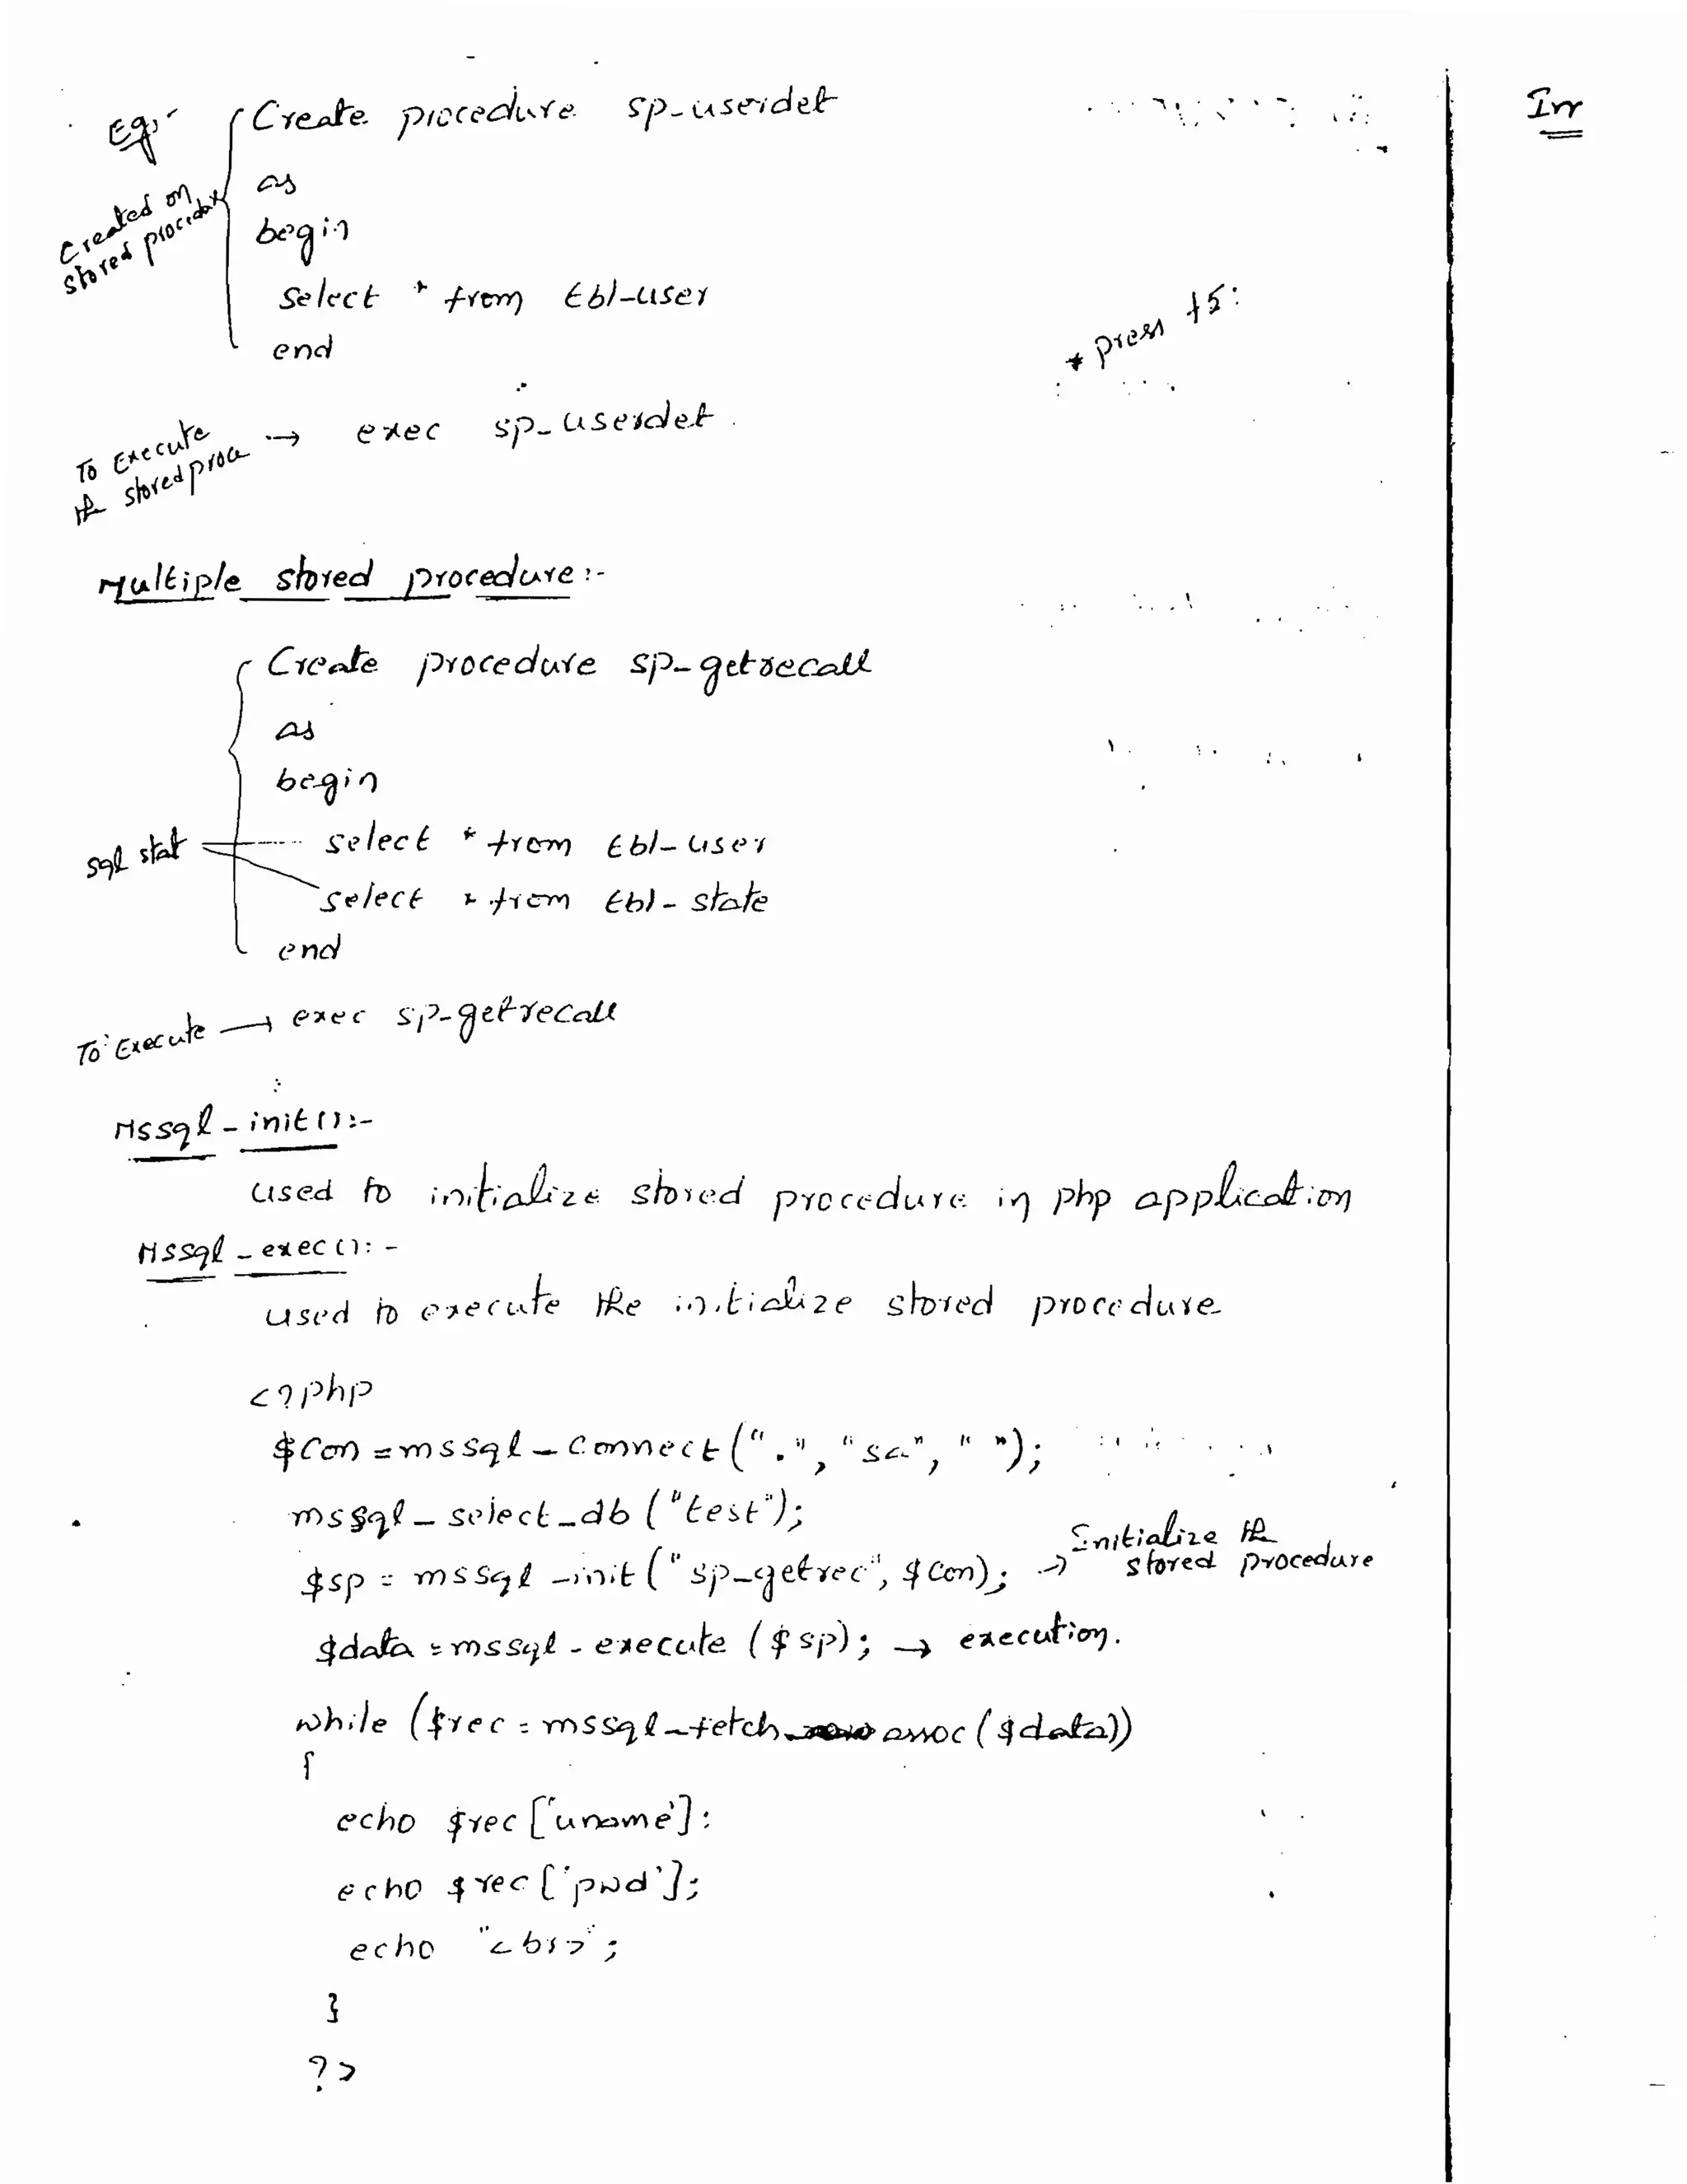 Eg:-
Create procedure sp_userdet
Created on
stored procedure
as
begin
select * from tbl-user
end
* press f5:
To Execute
the stored proce → exec sp_userdet.
Multiple stored procedure:-
Create procedure sp-getrecall
as
begin
sql stat
select * from tbl-user
select * from tbl-state
end
To Execute → exec sp-getrecall
Mssql-init():-
used to initialize stored procedure in php application
Mssql-exec():-
used to execute the initialize stored procedure
<?php
$Con = mssql-connect(".", "sa", " ");
mssql-select-db ("test");
$sp = mssql-init("sp-getrec", $Con); → Initialize the stored procedure
$data = mssql-execute ($sp); → execution.
while ($rec = mssql-fetch-assoc ($data))
{
echo $rec['uname'];
echo $rec['pwd'];
echo "<br>";
}
?>